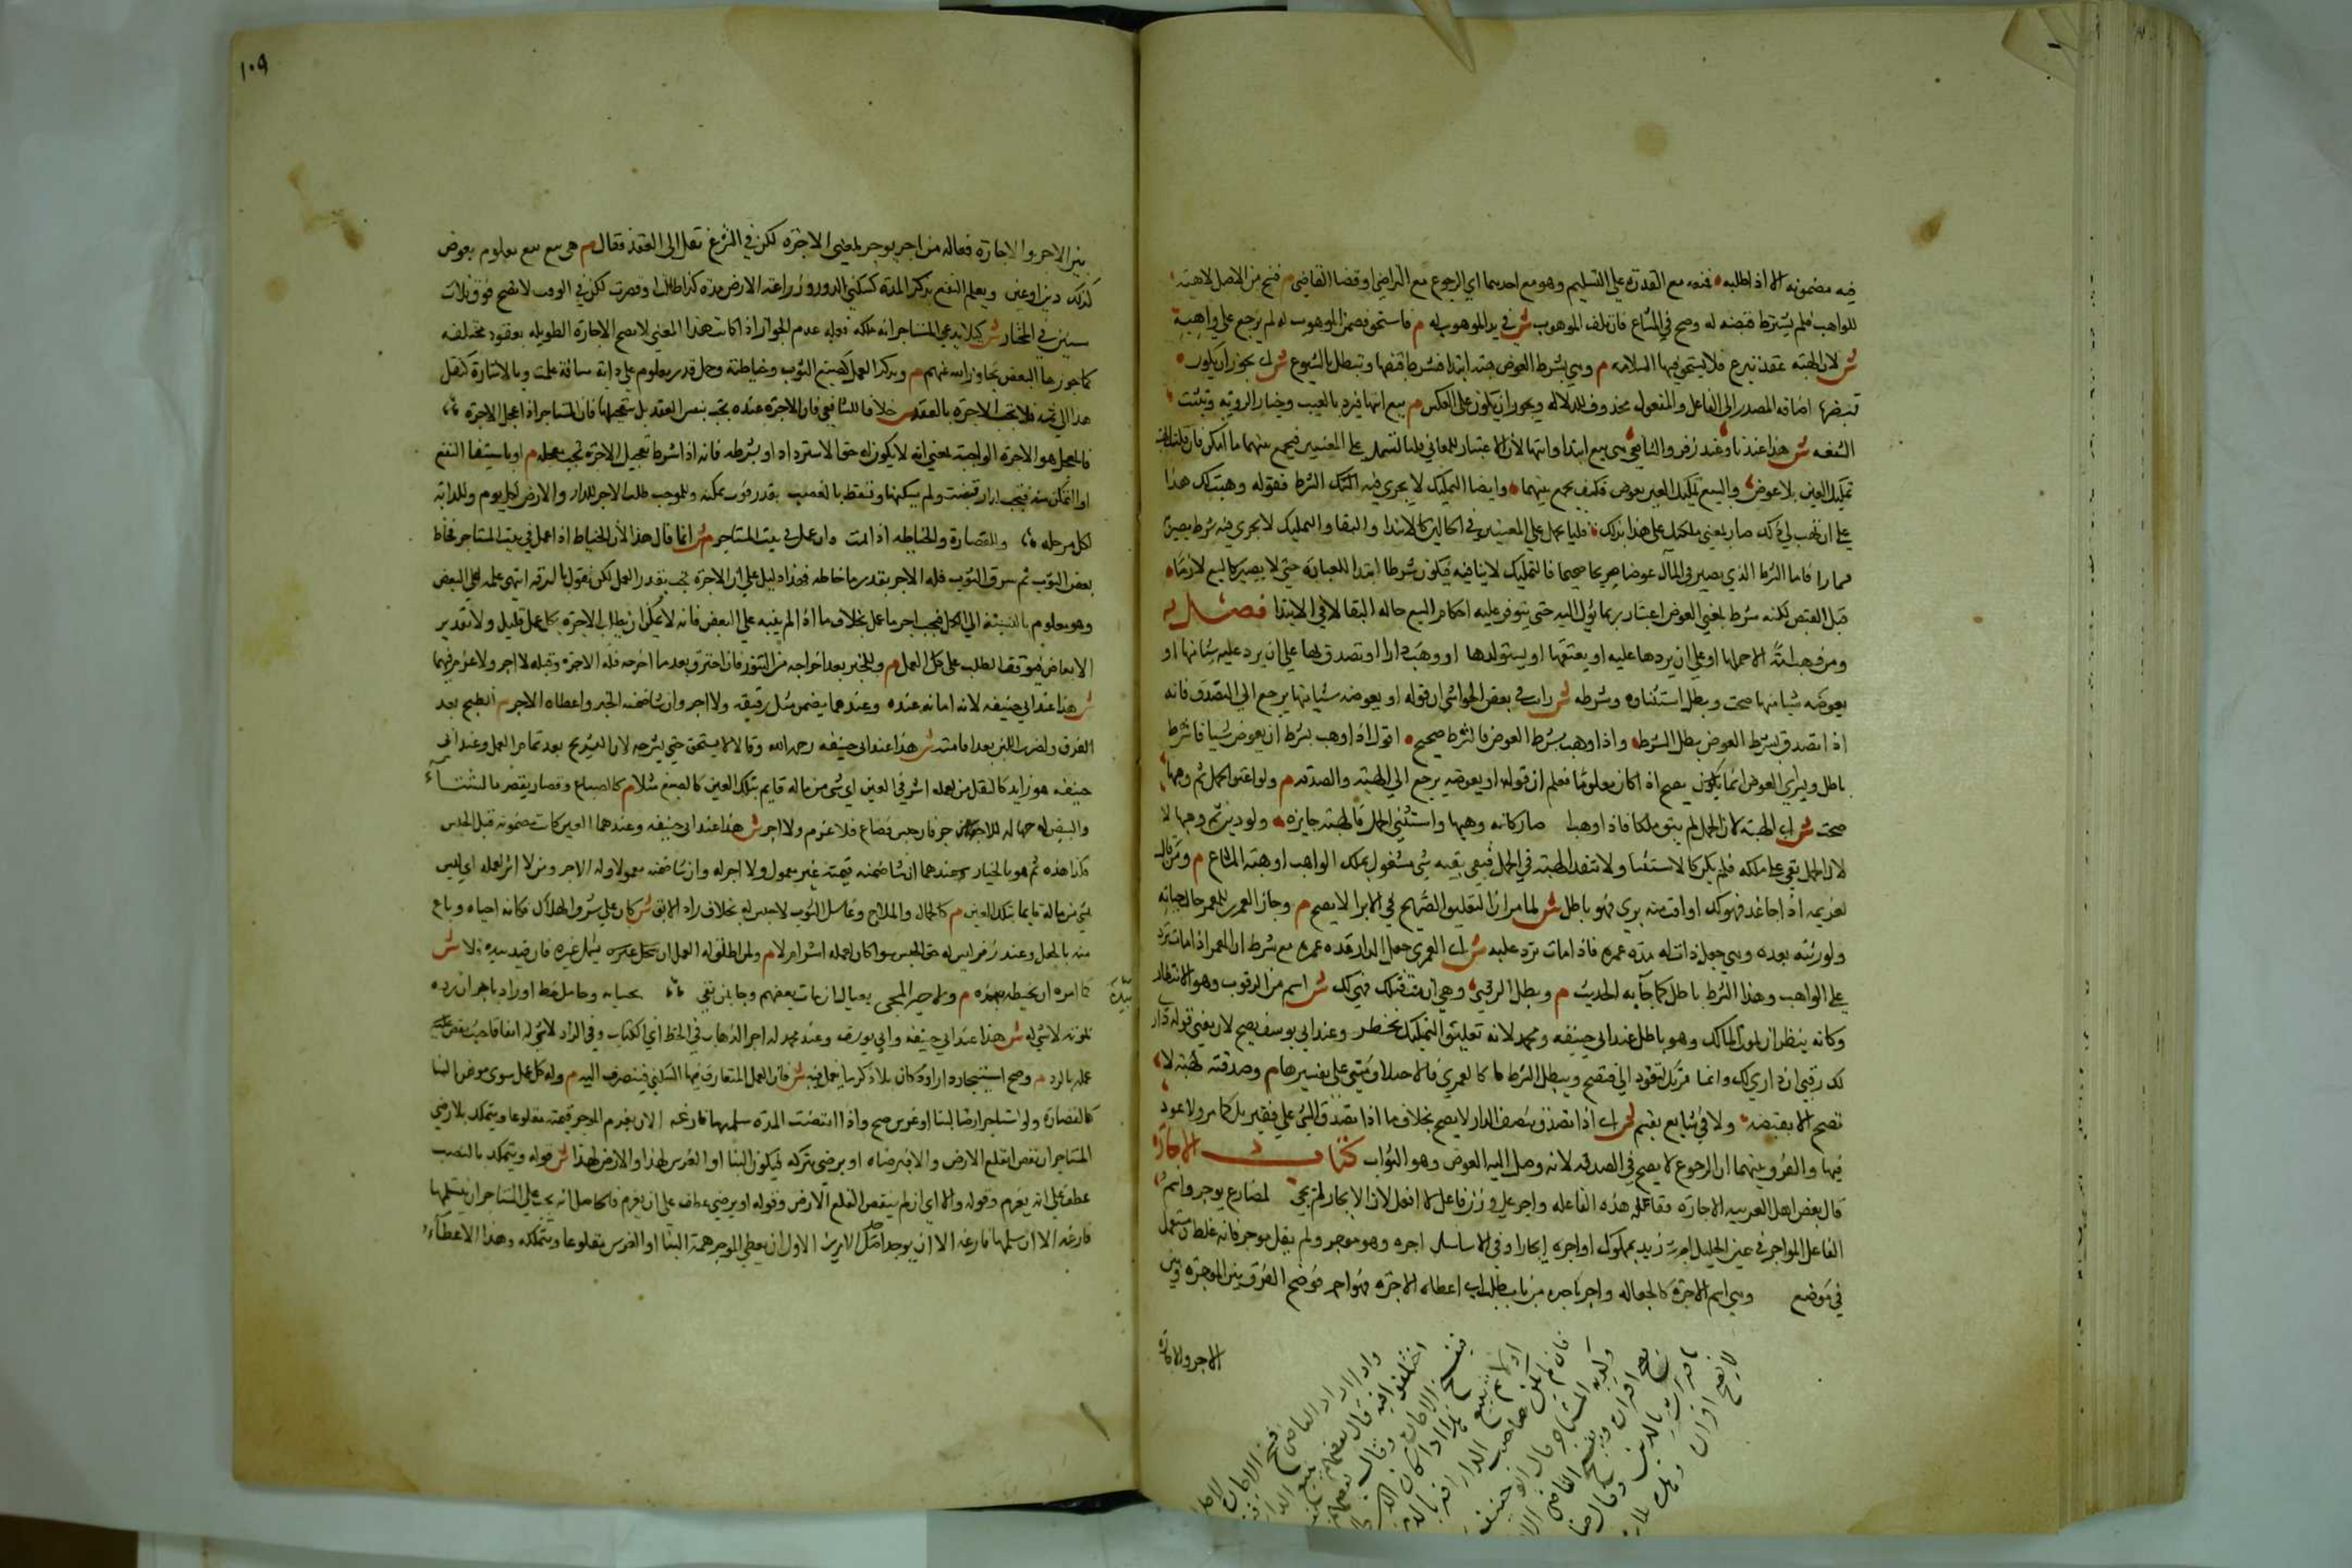 فيه مضمونه الا اذا طلبه فمنعه مع القدرة على التسليم وهو مع احدهما اي الرجوع مع التراضي او قضا القاضي م فسخ من الاصل لا هبة
للواهب فلم يشترط قبضه له وصح في المشاع فان تلف الموهوب ش في يد الموهوب له م فاستحق فضمن الموهوب له لم يرجع على واهبه
ش لان الهبة عقد تبرع فلا يستحق فيها السلامة م وهي بشرط العوض هبة ابتدا فشرط قبضهما وتبطل بالشيوع ش اي يجوز ان يكون
قبضهما اضافة المصدر الى الفاعل والمفعول محذوف للدلالة ويجوز ان يكون على العكس م بيع انتها فيرد بالعيب وخيار الرؤية وتثبت
الشفعه ش هذا عندنا وعند زفر والشافعي هي بيع ابتدا وانتها لان الاعتبار للمعاني قلنا تشتمل على المعنيين فيجمع بينهما ما امكن فان قلت الهبة
تمليك العين بلا عوض والبيع تمليك العين بعوض فكيف يجمع بينهما وايضا التمليك لا يجري فيه الشرط فقوله وهبتك هذا
على ان تهب لي ذلك صار بمعنى ملكتك على هذا بذلك قلنا يحمل على المعنيين في الحالين كالابتدا والبقا والتمليك لا يجري فيه شرط يصير
قمارا فاما الشرط الذي يصير في المآل عوضا صريحا صحيحا فالتمليك لا ينافيه فيكون شرطا ابتدا للعبارة حتى لا يصير كالبيع لازما
قبل القبض لكنه شرط بمعنى العوض اعتبار بما يؤل اليه حتى يتوفر عليه احكام البيع حالة البقا لا في الابتدا فصل
ومن وهب امة الا حملها او على ان يردها عليه او يعتقها او يستولدها او وهب دارا او تصدق بها على ان يرد عليه شيا منها او
يعوضه شيا منها صحت وبطل استثناوه وشرطه ش رايت في بعض الحواشي ان قوله او يعوضه شيا منها يرجع الى التصدق فانه
اذا تصدق بشرط العوض بطل الشرط واذا وهب بشرط العوض فالشرط صحيح اقول اذا وهب بشرط ان يعوض شيا فالشرط
باطل وشرط العوض انما يكون يصح اذا كان معلوما فعلم ان قوله او يعوضه يرجع الى الهبة والصدقة م ولو اعتق الحمل ثم وهبها
صحت ش اي الهبة لان الحمل لم يبق ملكا فاذا وهبا صار كانه وهبها واستثنى الحمل فالهبة جايزه ولو دبره ثم وهبها لا
لان الحمل بقي على ملكه فلم يكن كالاستثنا ولا تنفذ الهبة في الحمل فبقي بقية شي مشغول بملك الواهب او هبة المشاع م ومن قال
لغريمه اذا جا غد فهو لك او انت منه بري فهو باطل ش لما مر ان التعليق الصريح في الابرا لا يصح م وجاز العمرى للمعمر حال حياته
ولورثته بعده وهي جعل داره له مدة عمره فاذا مات ترد عليه ش اي العمرى جعل الدار له مدة عمره مع شرط ان المعمر اذا مات ترد
على الواهب وهذا الشرط باطل كما جا به الحديث م وبطل الرقبى وهي ان مت قبلك فهي لك ش اسم من الرقوب وهو الانتظار
وكانه ينتظر ان يموت المالك وهو باطل عند ابي حنيفه ومحمد لانه تعليق التمليك بخطر وعند ابي يوسف يصح لان معنى قوله داري
لك رقبى ان داري لك وانما ترقب لتعود الي فتصح ويبطل الشرط كالعمرى فالاختلاف مبني على تفسيرها م وصدقته كهبته لا
تصح الا بقبضه ولا في شايع يقسم ش اي اذا تصدق بنصف الدار لا يصح بخلاف ما اذا تصدق بشي على فقيرين كما مر ولا عود
فيها والفرق بينهما ان الرجوع لا يصح في الصدقة لانه وصل اليه العوض وهو الثواب كتاب الاجارة
قال بعض اهل العربيه الاجارة فعالة من المفاعله واجر على وزن فاعل لا افعل لان الايجار لم يجي لمضارع يوجر واسم
الفاعل المواجر في عين الخليل اجرت زيدا مملوكي اواجره ايجارا وفي الاساس اجره وهو موجر ولم يقل مواجر فانه غلط ومستعمل
في موضع وهي اسم للاجرة كالجعالة واجر ياجره من باب طلب اي اعطاه الاجرة فهو اجر فوضح الفرق بين الموجرة وبين
الاجر والاجارة
واذا اراد القاضي فسخ الاجارة
اختلفوا فيه قال بعضهم يبيع الدار
فينفسخ الاجارة وقال بعضهم
اولا ثم يبيع هذا اذا كان الدين
فان لم يكن صاحب الدار اقر بالدين
وكذبه المستاجر قال ابو حنيفة
يصح اقراره ويفسخ القاضي الا
باقراره بالدين وقال صا
لا يصح اقراره
١٠٩
بين الاجر والاجارة فعالة من اجر يوجر بمعنى الاجرة لكن في الشرع نقل الى العقد فقال م هي بيع نفع معلوم بعوض
كذلك دين او عين ويعلم النفع بذكر المدة كسكنى الدور وزراعة الارض مدة كذا طالت او قصرت لكن في الوقف لا تصح فوق ثلاث
سنين في المختار ش كيلا يدعي المستاجر انه ملكه فعلة عدم الجواز اذا كانت هذا المعنى لا يصح الاجارة الطويله بعقود مختلفه
كما جوزها البعض تجاوز الله عنهم م وبذكر العمل كصبغ الثوب وخياطته وحمل قدر معلوم على دابة مسافة علمت وبالاشارة كنقل
هذا الى ثمه فلا تجب الاجرة بالعقد ش خلافا للشافعي فان الاجرة عنده تجب بنفس العقد بل بتعجيلها فان المستاجر اذا عجل الاجرة
فالمعجل هو الاجرة الواجبة بمعنى انه لا يكون له حق الاسترداد او بشرطه فانه اذا شرط تعجيل الاجرة تجب معجله م او باستيفا النفع
او التمكن منه فتجب لدار قبضت ولم يسكنها وتسقط بالغصب بقدر فوت تمكنه وللموجب طلب الاجر للدار والارض لكل يوم وللدابة
لكل مرحله وللقصارة والخياطه اذا تمت وان عمل في بيت المستاجر م ش انما قال هذا لان الخياط اذا عمل في بيت المستاجر فخاط
بعض الثوب ثم سرق الثوب فله الاجر بقدر ما خاطه فهذا دليل على ان الاجرة تجب بقدر العمل لكن نقول بالسرقه انتهى عمله على البعض
وهو معلوم بالنسبة الى الكل فتجب اجر ما عمل بخلاف ما اذا لم ينته على البعض فانه لا يمكن ان يطلب الاجرة بكل عمل قليل ولا تقدير
الابعاض فيتوقف الطلب على كل العمل م وللخبز بعد اخراجه من التنور فان احترق بعد ما اخرجه فله الاجرة وقبله لا اجر ولا غرم فيهما
ش هذا عند ابي حنيفه لانه امانه عنده وعندهما يضمن مثل دقيقه ولا اجر وان شا ضمنه الخبز واعطاه الاجر م وللطبخ بعد
الغرف ولضرب اللبن بعد اقامته ش هذا عند ابي حنيفه رحمه الله وقالا لا يستحق حتى يشرجه لان التشريج بعد تمام العمل وعند ابي
حنيفه هو زايد كالنقل من لعمله اثر في العين اي شي من ماله قايم بتلك العين كالصبغ مثلا م كالصباغ وقصار يقصر بالنشا
والبيض له حبسها للاجرة فان حبس فضاع فلا غرم ولا اجر ش هذا عند ابي حنيفه وعندهما العين كانت مضمونه قبل الحبس
فكذا بعده ثم هو بالخيار عندهما ان شا ضمنه قيمته غير معمول ولا اجر له وان شا ضمنه معمولا وله الاجر ومن لا اثر لعمله اي ليس
شي من ماله قايما بتلك العين م كالحمال والملاح وغاسل الثوب لا حبس له بخلاف راد الابق ش كان على شرف الهلاك فكانه احياه وباع
منه بالجعل وعند زفر ليس له حق الحبس سوا كان لعمله اثر ام لا م ولمن اطلق له العمل ان يستعمل غيره فان قيد بيده فلا ش
كما امره ان يخيطه بيده م ولاجير المجي بعياله ان مات بعضهم وجا بمن بقي بحسابه وحامل خط او زاد باجر ان رده
بيده
لموته لا شي له ش هذا عند ابي حنيفه وابي يوسف وعند محمد له اجر الذهاب في الخط اي الكتاب وفي الزاد لا شي له اتفاقا حيث نقض
عمله بالرد م وصح استيجار دار او دكان بلا ذكر ما يعمل فيه ش فان العمل المتعارف فيها السكنى فينصرف اليه م وله كل عمل سوى موهن البنا
كالقصارة ولو استاجر ارضا لبنا او غرس صح واذا انقضت المدة سلمها فارغه الا ان يغرم الموجر قيمته مقلوعا ويتملكه بلا رضى
المستاجر ان نقص القلع الارض والا فبرضاه او يرضى بتركه فيكون البنا او الغرس لهذا والارض لهذا ش قوله ويتملكه بالنصب
عطف على ان يغرم وقوله والا اي ان لم ينقص القلع الارض وقوله او يرضى عطف على ان يغرم فالحاصل انه يجب على المستاجر ان يسلمها
فارغه الا ان يوجد احد الامرين الاول ان يعطي الموجر قيمة البنا او الغرس مقلوعا ويتملكه وهذا الاعطاء